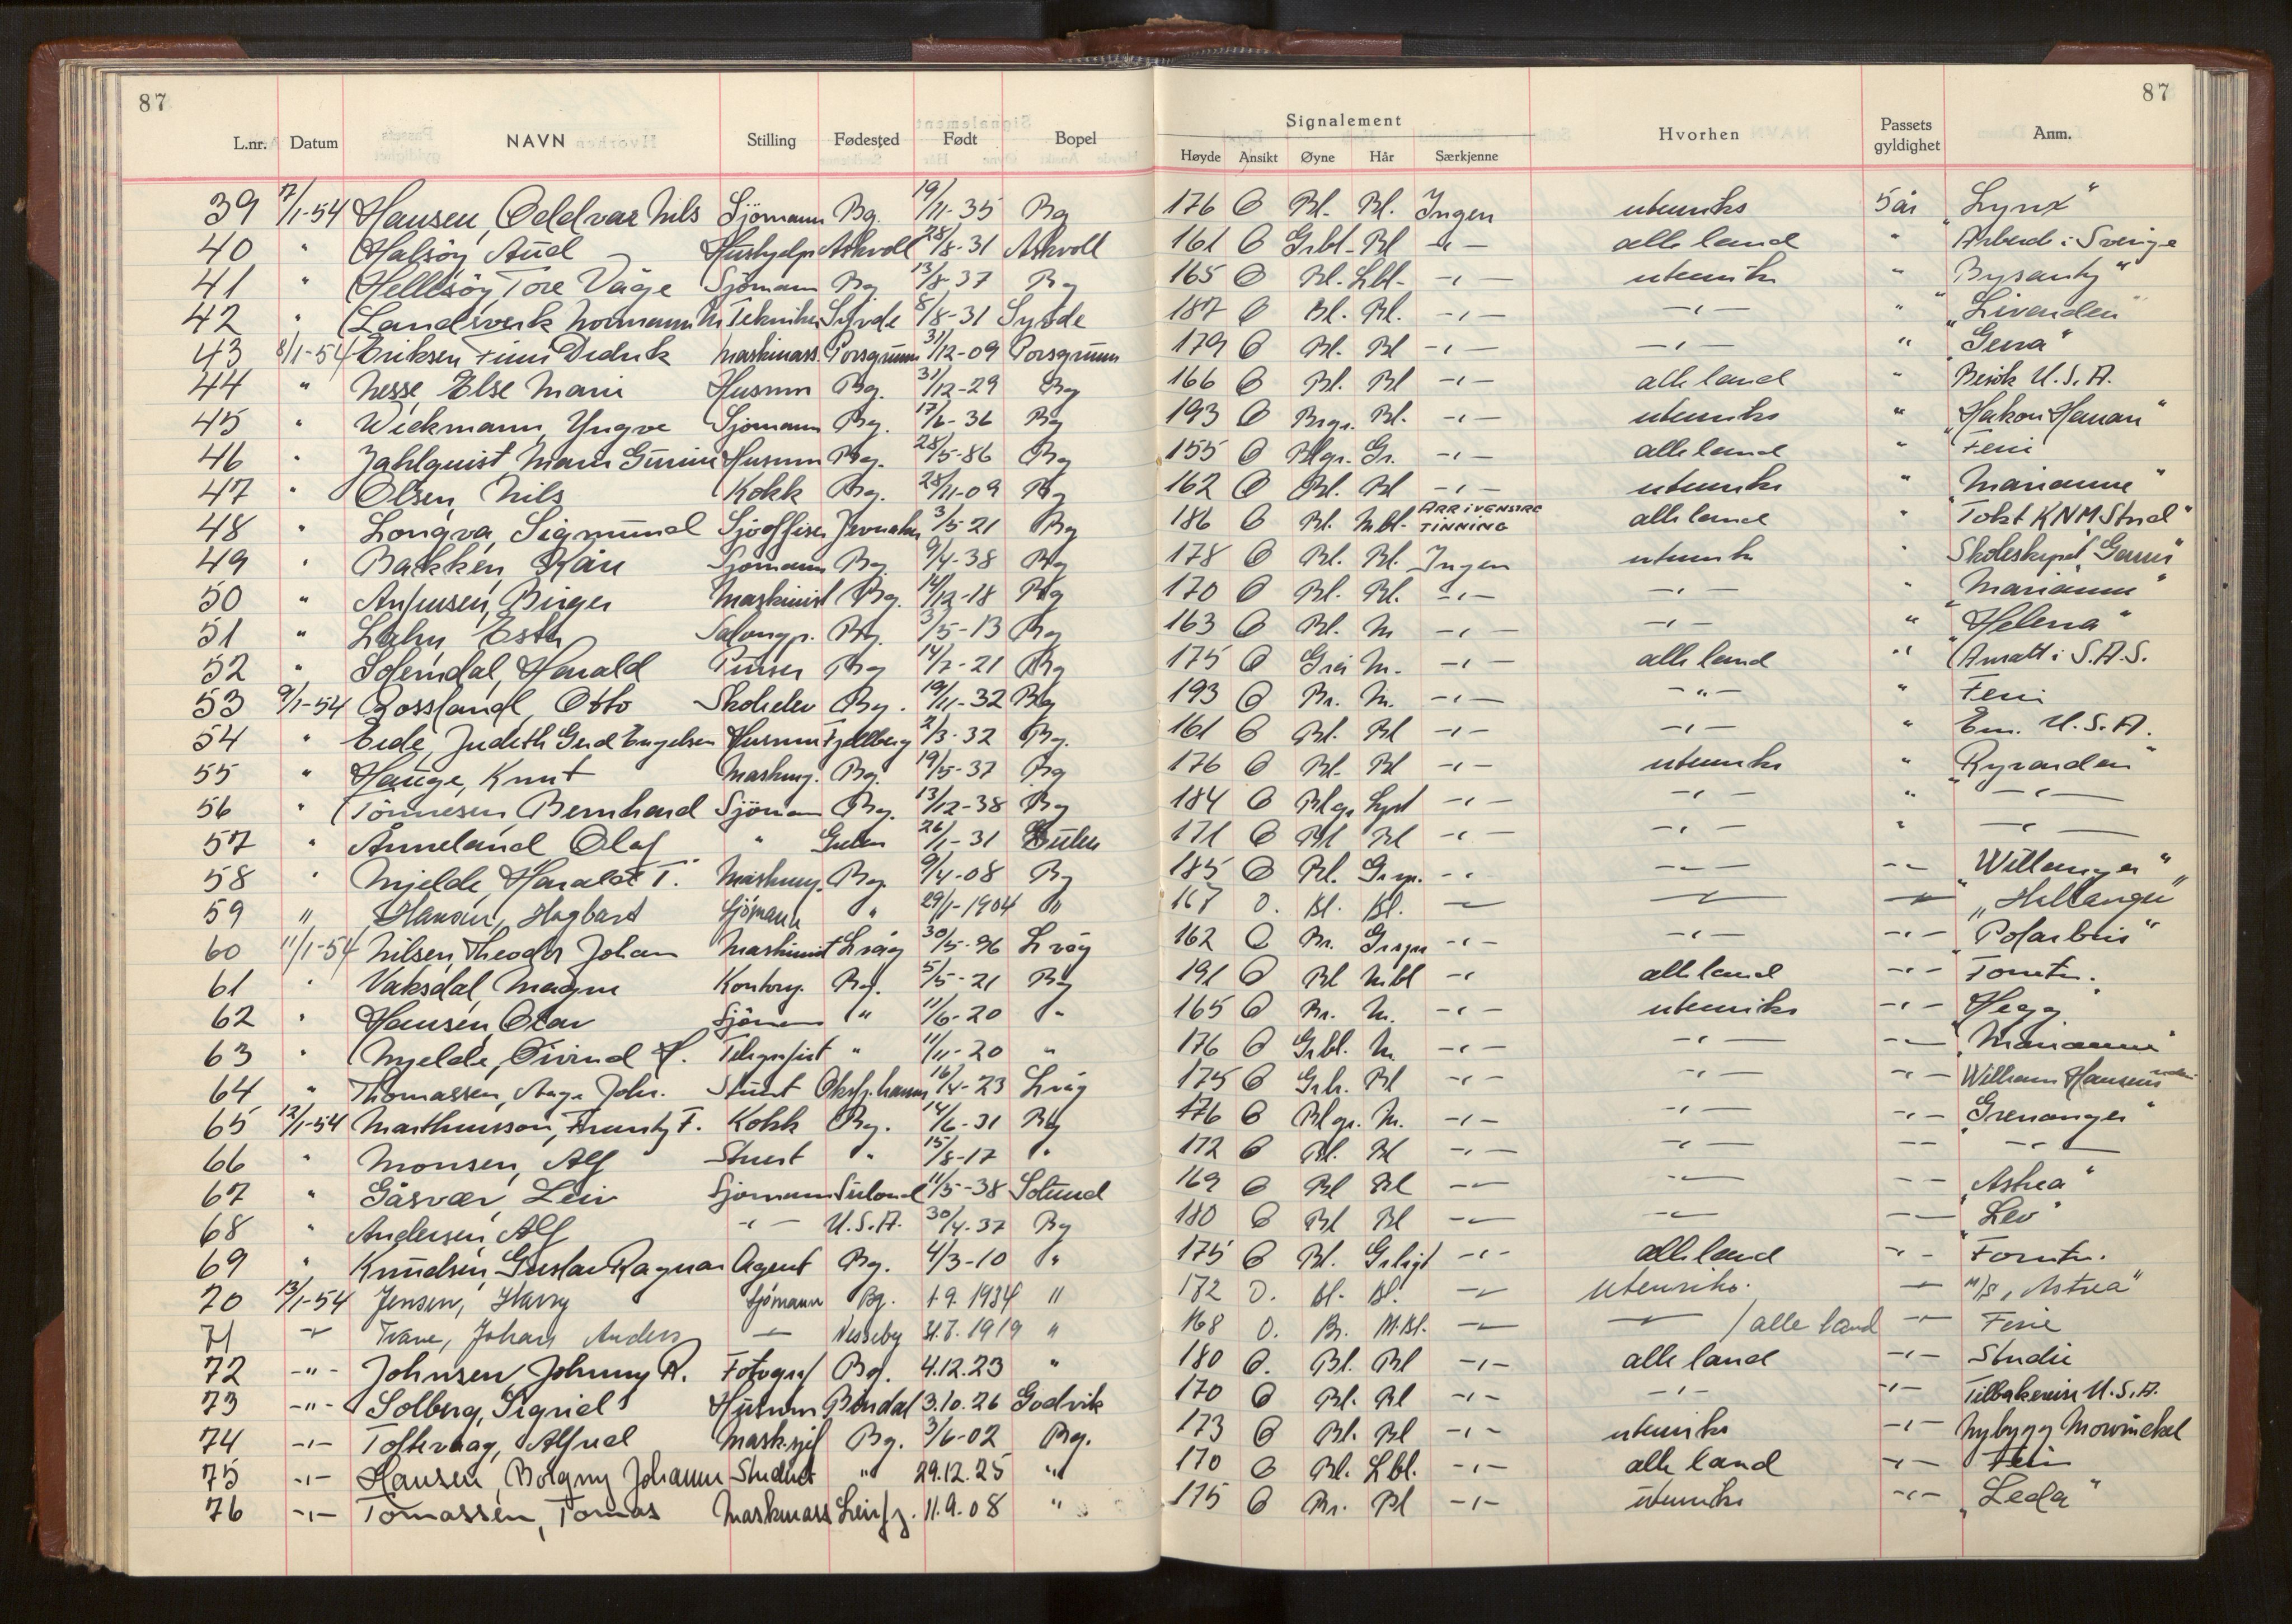 87
87
L.nr. Datum NAVN Stilling Fødested Født Bopel Signalement Høyde Ansikt Øyne Hår Særkjenne Hvorhen Passets gyldighet Anm.
39 7/1-54 Hansen, Oddvar Nils Sjömann Bg. 19/11-35 Bg 176 O Bl. Bl. Ingen utenriks 5 år "Lynx"
40 " Halsöy Aud Hushjelp Askvoll 28/8-31 Askvoll 161 O Grbl. Bl -"- alle land " Arbeid i Sverige
41 " Hellesöy, Tore Våge Sjömann Bg 13/8-37 Bg 165 O Bl. Lbl. -"- utenriks "
42 " Landsverk Normann Tekniker Syvde 8/8-31 Syvde 187 O Bl. Bl. -"- -"- "
43 8/1-54 Eriksen Finn Didrik Maskinass. Porsgrunn 31/12-09 Porsgrunn 179 O Bl. Bl -"- -"- "
44 " Nesse, Else Marie Husmor Bg. 31/12-29 Bg 166 O Bl. Bl -"- alle land " Besök U.S.A.
45 " Wickmann, Yngve Sjömann Bg. 17/6-36 Bg 193 O Brgr. Bl. -"- utenriks "
46 " Jahlquist, Husmor Bg. 28/5-86 Bg 155 O Blgr. Gr. -"- alle land " Ferie
47 " Olsen, Nils Kokk Bg. 28/11-09 Bg 162 O Bl. Bl -"- utenriks " "Marianne"
48 " Longva, Sigmund Sjöoffiser 3/5-21 Bg 186 O Bl. Mbl. ARR I VENSTRE TINNING alle land " Tokt KNM Stord"
49 " Bakken, Kåre Sjömann Bg. 9/4-38 Bg 178 O Bl. Bl. Ingen utenriks " Skoleskipet
50 " Birger Maskinist Bg. 14/12-18 Bg 170 O Bl. Bl. -"- -"- " "Marianne"
51 " Salongp. Bg. 3/5-13 Bg 163 O Bl. M -"- -"- " "Helena"
52 " Harald Purser Bg 14/7-21 Bg 175 O M. -"- alle land " Ansatt i S.A.S.
53 9/1-54 Rossland, Otto Skoleelev Bg. 19/11-32 Bg 193 O Br. M. -"- -"- " Ferie
54 " Eide, Judith Gerd Engelsen Husmor Fjellberg 2/3-32 Bg. 161 O Bl. Bl -"- -"- " Em. U.S.A.
55 " Hauge, Knut Masking. Bg. 19/5-37 Bg 176 O Bl. Bl -"- utenriks "
56 " Tönnesen, Bernhard Sjömann Bg. 13/12-38 Bg 184 O Blgr. Lyst -"- -"- " -"-
57 " Ånneland Olaf " Gulen 26/1-31 Gulen 171 O Bl Bl -"- -"- " -"-
58 " Mjelde, Harald T. Bg. 9/4-08 Bg 185 O Bl. -"- -"- -"- "Willanger"
59 " Hansen, Hagbart Sjömann " 29/1-1904 " 167 O. Bl. Bl. -"- -"- -"- "Hallanger"
60 11/1-54 Nilsen, Theodor Johan Maskinist Lvåg 30/5-96 Lvåg 162 O Br. -"- -"- -"- "Polarbris"
61 " Vaksdal, Magne Bg. 5/5-21 Bg 191 O Bl Mbl -"- alle land -"-
62 " Hansen, Olav Sjömann " 11/6-20 " 165 O Br. M. -"- utenriks -"- "Hegg"
63 " Mjelde, Öivind H. Telegrafist " 11/11-20 " 176 O Grbl. M. -"- -"- -"- "Marianne"
64 " Thomassen, Aage Joh. Stuert 16/4-23 Lvåg 175 O Bl -"- -"- -"- William Hansens
65 12/1-54 Marthinusson, F. Kokk Bg. 14/6-31 Bg 176 O Blgr. M. -"- -"- -"- "Grenanger"
66 " Monsen, Alf Stuert " 15/8-17 " 172 O Bl. Bl -"- -"- -"- -"-
67 " Gåsvær, Leiv Sjömann 11/5-38 Solund 169 O Bl Bl -"- -"- -"- "Astrea"
68 " Andersen, Alf -"- U.S.A. 30/4-37 Bg 180 O Bl Bl -"- -"- -"- "Leo"
69 " Knudsen, Gustav Ragnar Agent Bg. 4/3-10 " 175 O Bl. -"- alle land -"-
70 13/1-54 Jensen, Harry Sjömann Bg. 1.9.1934 " 172 O. Bl. Bl. -"- utenriks. -"- M/S "Astrea"
71 -"- Johan Anders -"- Nesseby 31.7.1919 " 168 O. Br. M.Bl. -"- -"- / alle land -"- Ferie
72 -"- Johnsen, Johnny R. Fotograf Bg. 4.12.23 " 180 O. Bl. Bl -"- alle land -"- Studie
73 -"- Solberg, Sigrid Husmor Bindal 3.10.26 Godvik 170 O Bl. Bl -"- -"- -"- Tilbakereise U.S.A.
74 -"- Toftevaag, Alfred Masksjef Bg. 3/6-02 Bg. 173 O Bl. Bl -"- utenriks -"- Nybygg Mowinckel
75 -"- Hansen, Borgny Johanne Student " 29.12.25 " 170 O Bl. Lbl. -"- alle land -"- Ferie
76 -"- Tomassen, Tomas Maskinass 11.9.08 " 175 O Br. Bl -"- utenriks -"- "Leda"